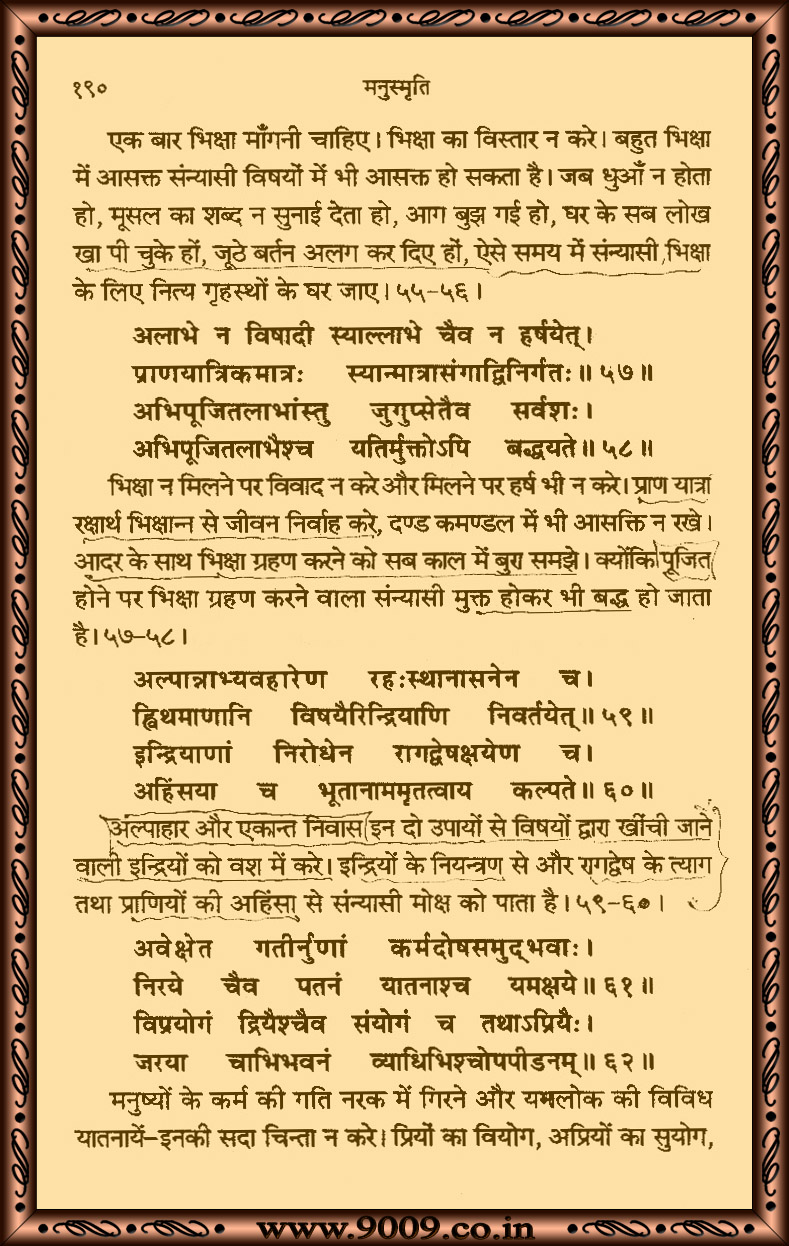 १९० मनुस्मृति
एक बार भिक्षा माँगनी चाहिए। भिक्षा का विस्तार न करे। बहुत भिक्षा
में आसक्त संन्यासी विषयों में भी आसक्त हो सकता है। जब धुआँ न होता
हो, मूसल का शब्द न सुनाई देता हो, आग बुझ गई हो, घर के सब लोख
खा पी चुके हों, जूठे बर्तन अलग कर दिए हों, ऐसे समय में संन्यासी भिक्षा
के लिए नित्य गृहस्थों के घर जाए। ५५-५६ ।
अलाभे न विषादी स्याल्लाभे चैव न हर्षयेत्।
प्राणयात्रिकमात्रः स्यान्मात्रासंगाद्विनिर्गतः॥ ५७॥
अभिपूजितलाभांस्तु जुगुप्सेतैव सर्वशः।
अभिपूजितलाभैश्च यतिर्मुक्तोऽपि बद्धयते॥ ५८॥
भिक्षा न मिलने पर विवाद न करे और मिलने पर हर्ष भी न करे। प्राण यात्रा
रक्षार्थ भिक्षान्न से जीवन निर्वाह करे, दण्ड कमण्डल में भी आसक्ति न रखे।
आदर के साथ भिक्षा ग्रहण करने को सब काल में बुरा समझे। क्योंकि पूजित
होने पर भिक्षा ग्रहण करने वाला संन्यासी मुक्त होकर भी बद्ध हो जाता
है। ५७-५८।
अल्पान्नाभ्यवहारेण रहःस्थानासनेन च।
ह्विथमाणानि विषयैरिन्द्रियाणि निवर्तयेत्॥ ५९॥
इन्द्रियाणां निरोधेन रागद्वेषक्षयेण च।
अहिंसया च भूतानाममृतत्वाय कल्पते॥ ६०॥
अल्पाहार और एकान्त निवास इन दो उपायों से विषयों द्वारा खींची जाने
वाली इन्द्रियों को वश में करे। इन्द्रियों के नियन्त्रण से और रागद्वेष के त्याग
तथा प्राणियों की अहिंसा से संन्यासी मोक्ष को पाता है। ५९-६०।
अवेक्षेत गतीर्नुणां कर्मदोषसमुद्भवाः।
निरये चैव पतनं यातनाश्च यमक्षये॥ ६१॥
विप्रयोगं द्रियैश्चैव संयोगं च तथाऽप्रियैः।
जरया चाभिभवनं व्याधिभिश्चोपपीडनम्॥ ६२॥
मनुष्यों के कर्म की गति नरक में गिरने और यमलोक की विविध
यातनायें-इनकी सदा चिन्ता न करे। प्रियों का वियोग, अप्रियों का सुयोग,
www.9009.co.in